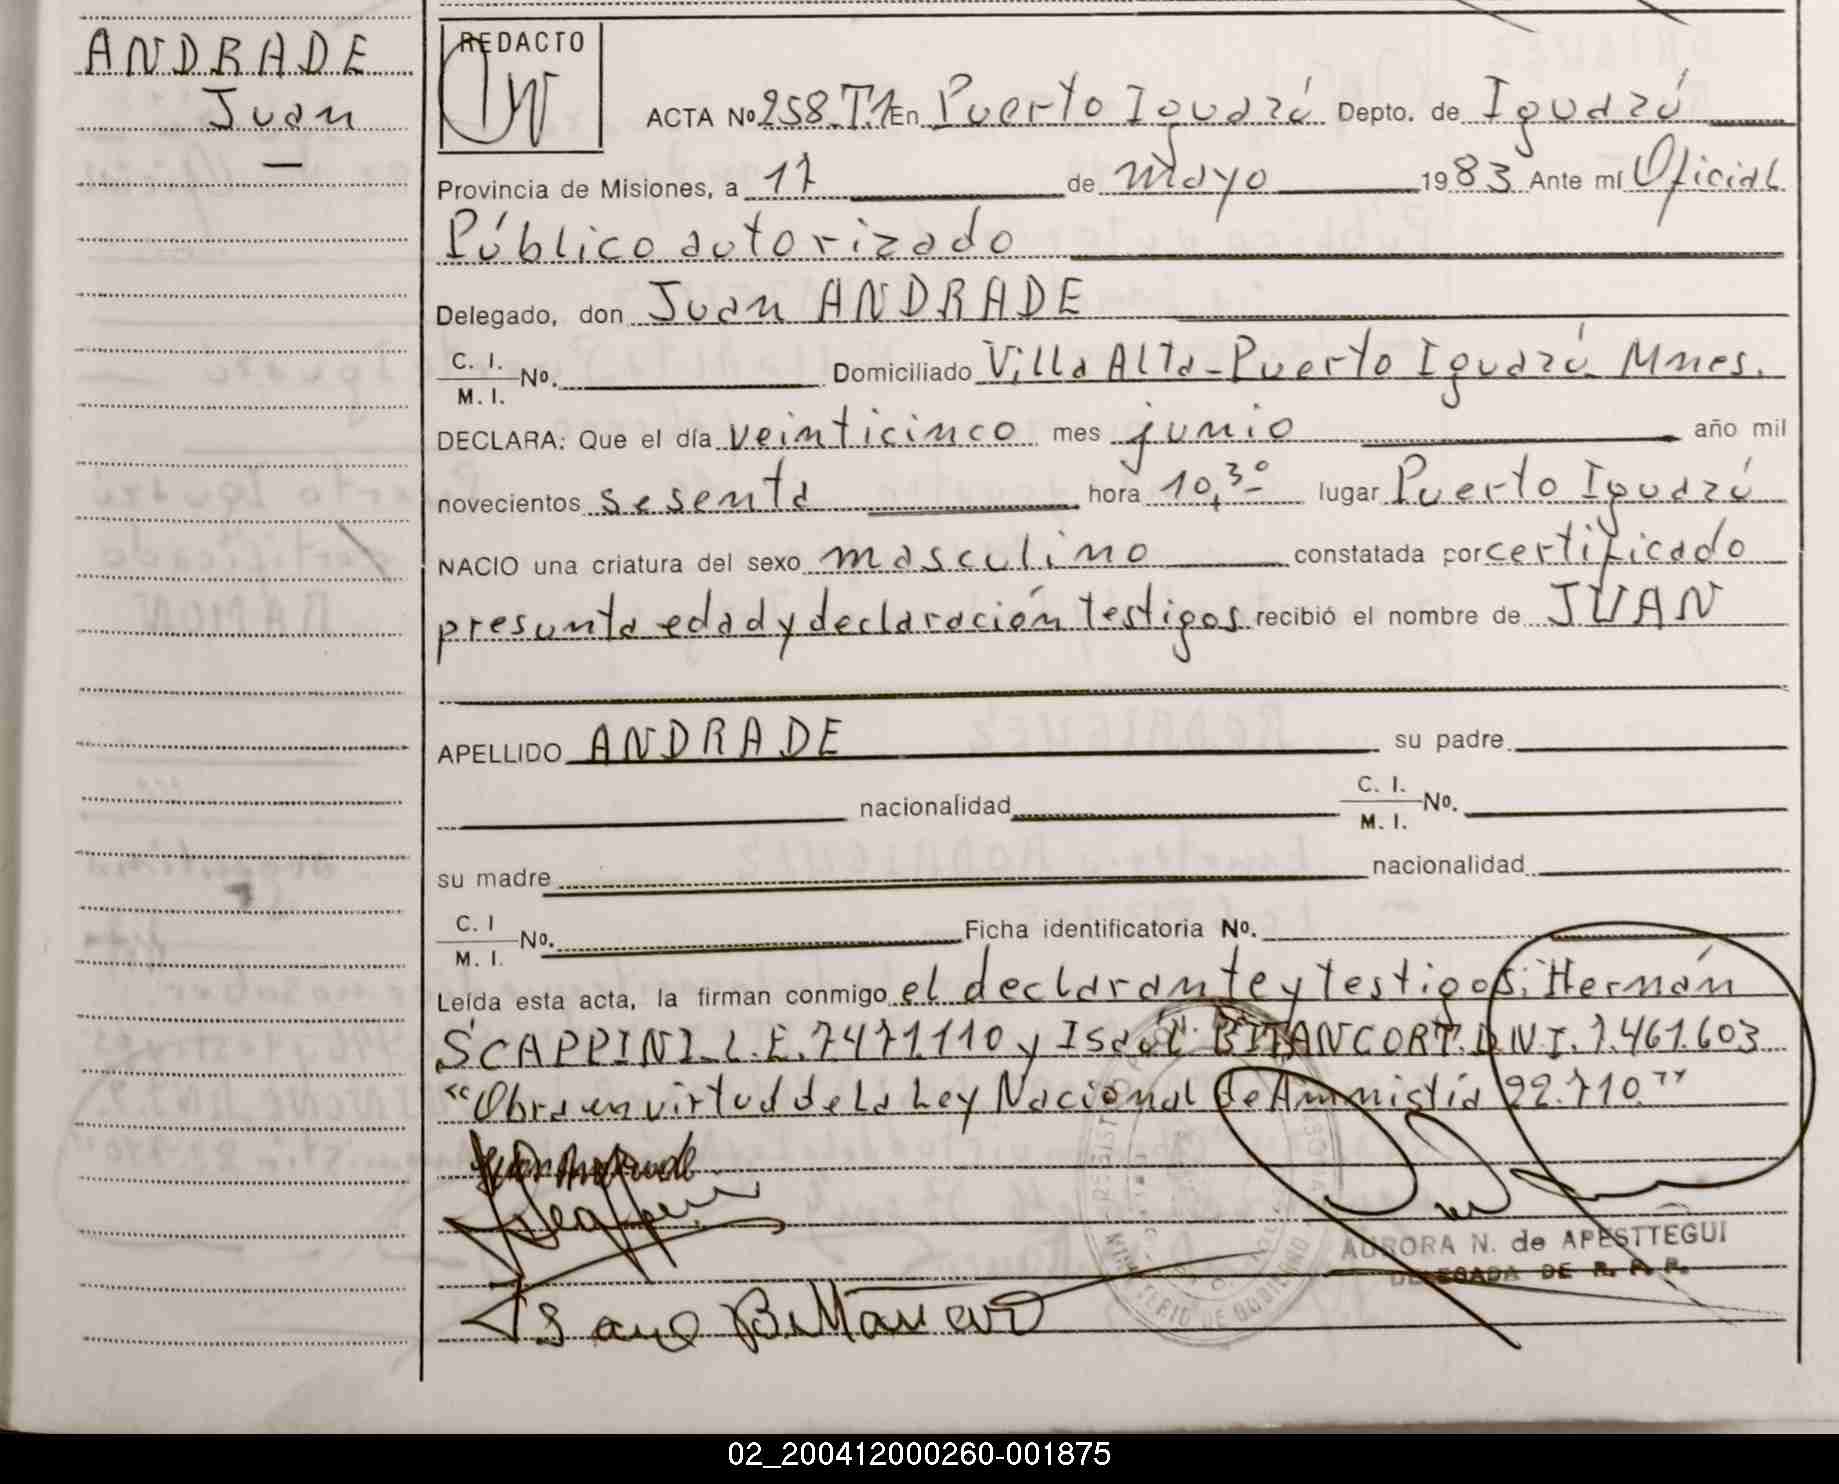 ANDRADE
Juan
REDACTO
ACTA Nº 258.T.1 En Puerto Iguazú Depto. de Iguazú
Provincia de Misiones, a 17 de mayo 1983 Ante mí Oficial
Público autorizado
Delegado, don Juan ANDRADE
C. I.
M. I. Nº. Domiciliado Villa Alta - Puerto Iguazú Mnes.
DECLARA: Que el día veinticinco mes junio año mil
novecientos sesenta hora 10,30 lugar Puerto Iguazú
NACIO una criatura del sexo masculino constatada por certificado
presunta edad y declaración testigos recibió el nombre de JUAN
APELLIDO ANDRADE su padre
nacionalidad C. I.
M. I. Nº.
su madre nacionalidad
C. I
M. I. Nº. Ficha identificatoria Nº.
Leída esta acta, la firman conmigo el declarante y testigos: Hernán
SCAPPINI. L.E. 7471.110 y Isaúl BITANCORT. D.N.I. 7.461.603
"Obra en virtud de la Ley Nacional de Amnistía 22.710"
AURORA N. de APESTTEGUI
DELEGADA DE R. P. P.
02_200412000260-001875